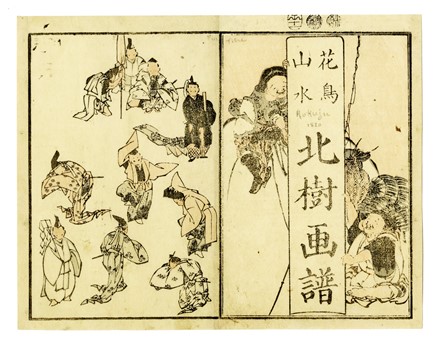 花鳥
山水
Hokuju
北樹画譜